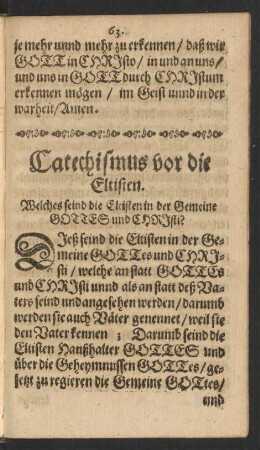 63.
je mehr unnd mehr zu erkennen / daß wir
GOTT in CHRIsto / in und an uns /
und uns in GOTT durch CHRIstum
erkennen mögen / im Geist unnd in der
warheit / Amen.
Catechismus vor die
Eltisten.
Welches seind die Eltisten in der Gemeine
GOTTES und CHRIsti?
DIeß seind die Eltisten in der Ge-
meine GOTTes und CHRI-
sti / welche an statt GOTTEs
und CHRIsti unnd als an statt deß Va-
ters seind und angesehen werden / darumb
werden sie auch Väter genennet / weil sie
den Vater kennen ; Darumb seind die
Eltisten Haußhalter GOTTES und
über die Geheymnussen GOTTes / ge-
setzt zu regieren die Gemeine GOTtes /
und